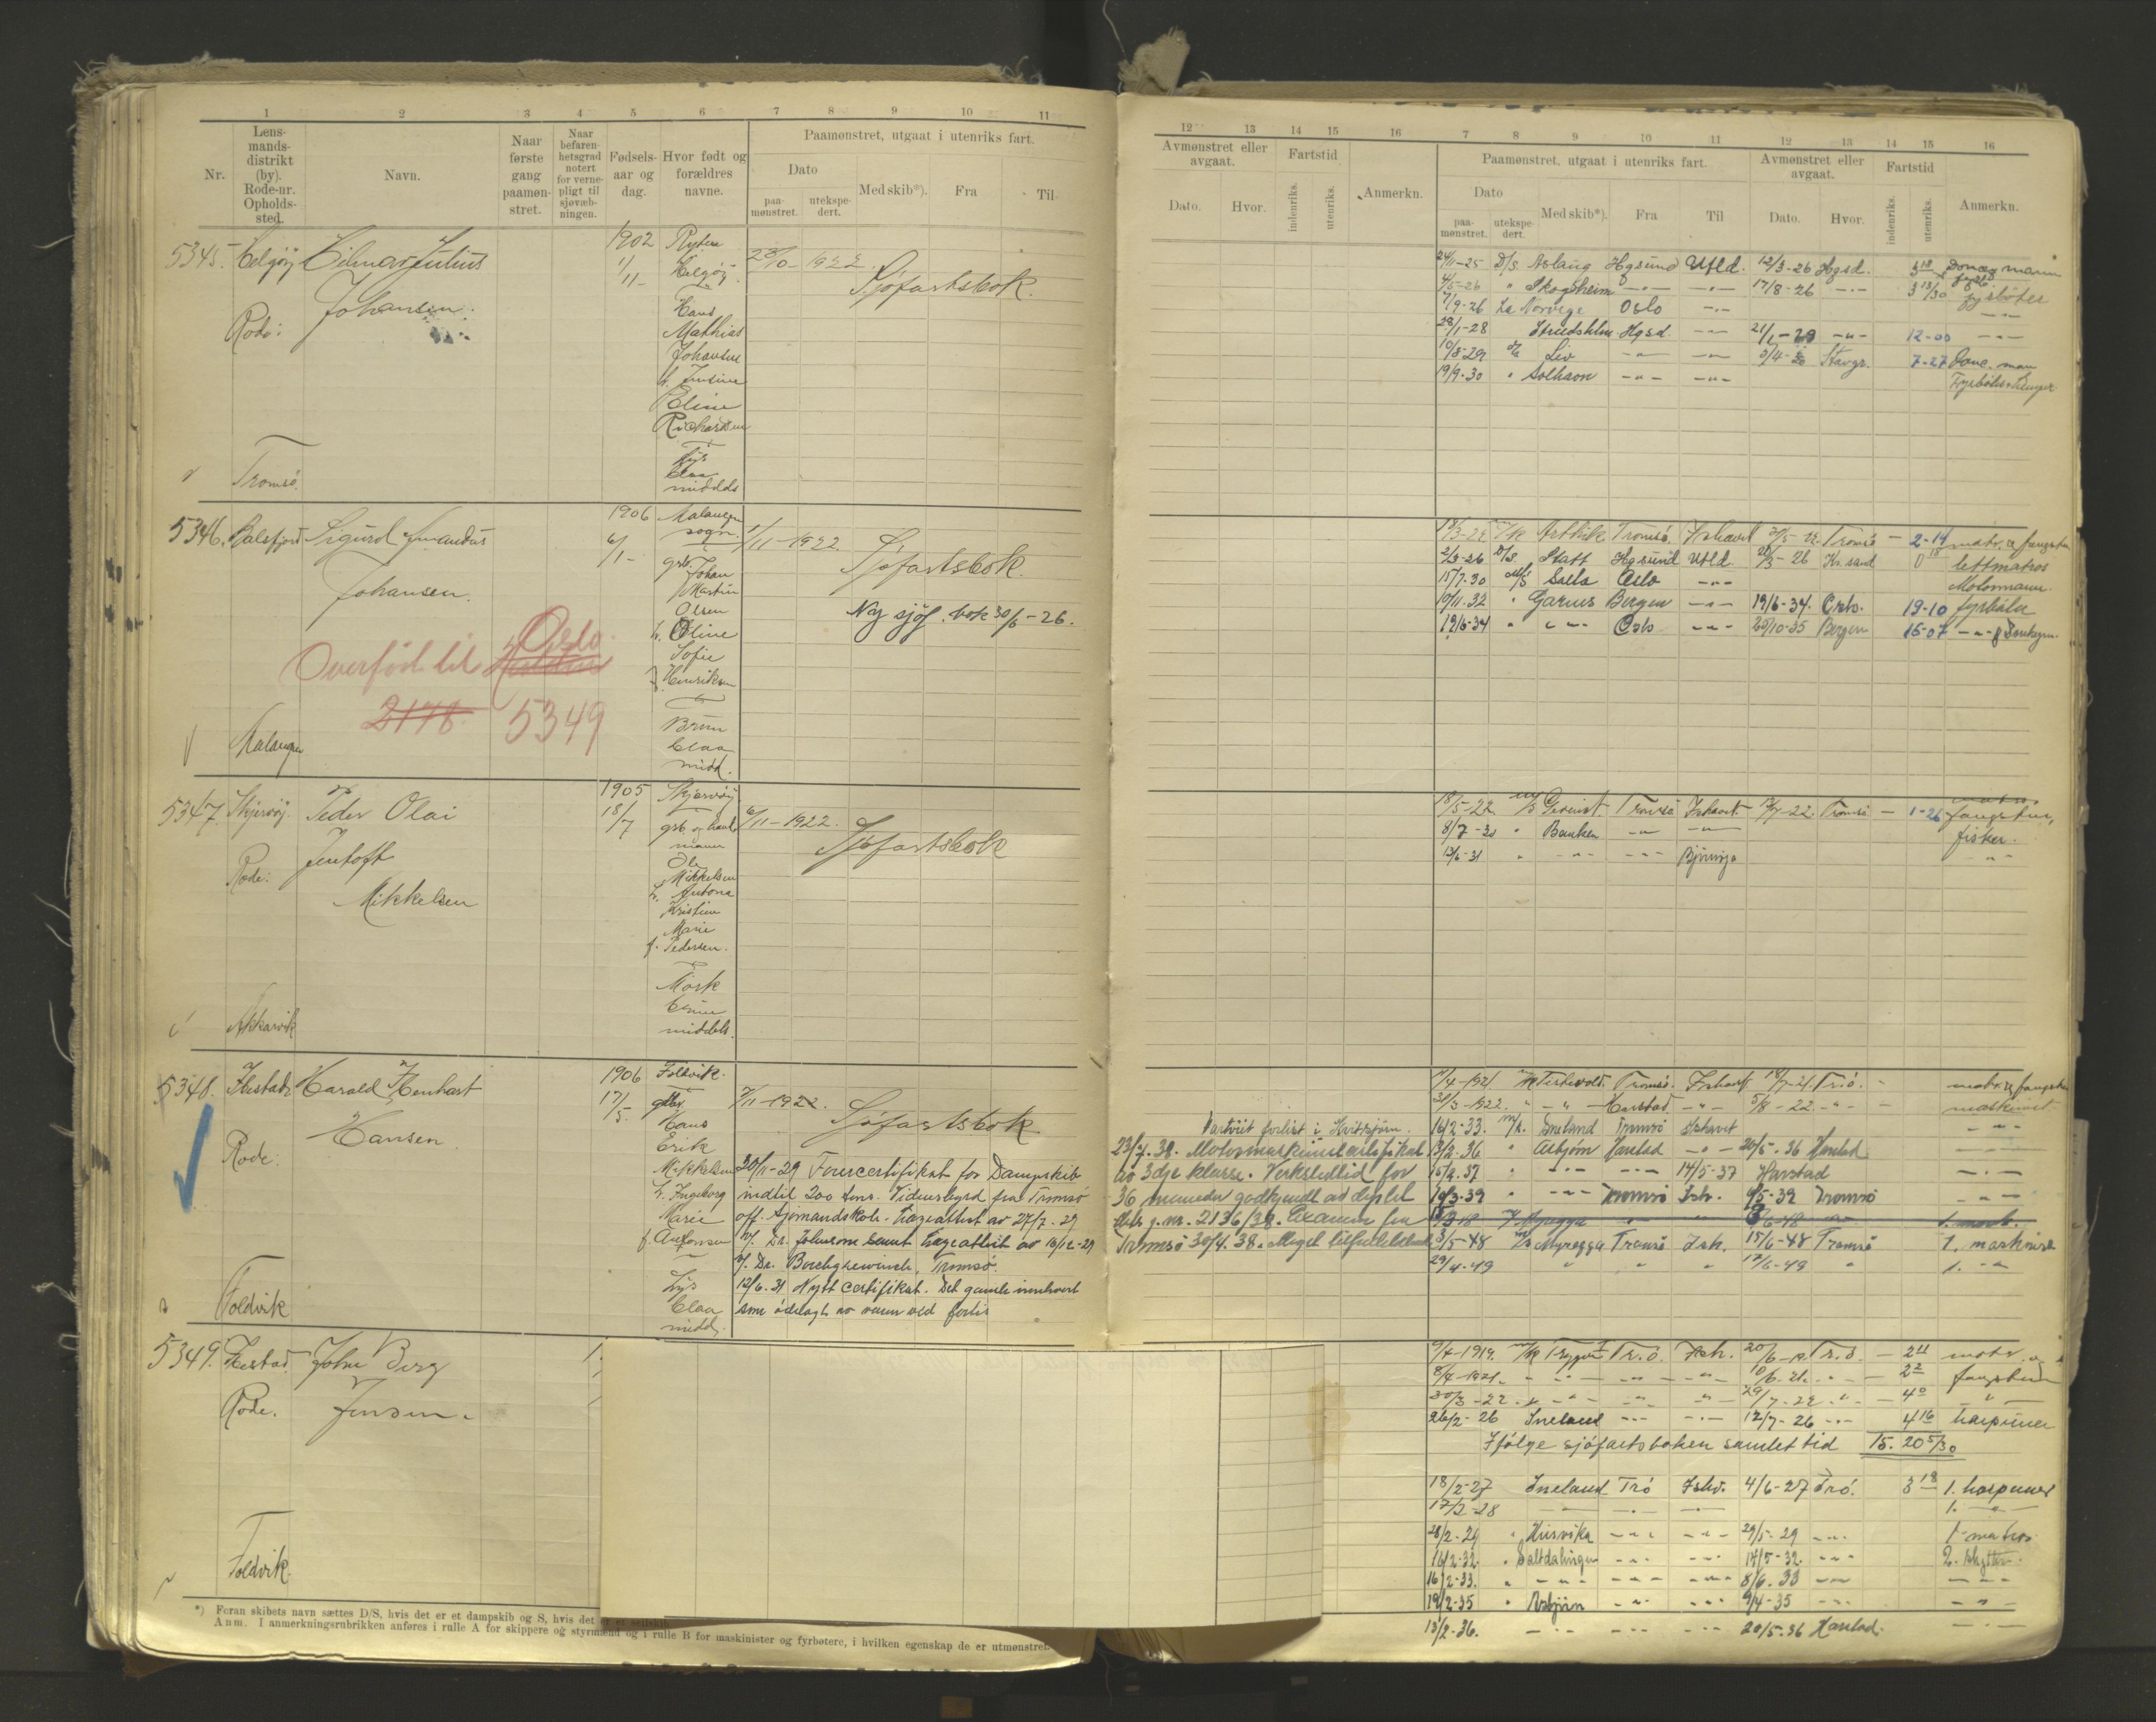 1 2 3 4 5 6 7 8 9 10 11
Nr.
Lens-
mands-
distrikt
(by).
Rode-nr.
Opholds-
sted.
Navn.
Naar
første
gang
paamøn-
stret.
Naar
befaren-
hetsgrad
notert
for verne-
pligt til
sjøvæb-
ningen.
Fødsels-
aar og
dag.
Hvor født og
forældres
navne.
Paamønstret, utgaat i utenriks fart.
Dato
paa-
mønstret.
utekspe-
dert.
Med skib*).
Fra
Til.
5345. Helgøy Hilmar Julius
Johansen.
Rode:
Tromsö.
1902
1/11-
Helgøy
Hans
Mathias
Johansen
Eline
Richardsen
Lys
blaa
middels
23/10-1922.
Sjøfartsbok.
5346. Balsfjord Sigurd Amandus
Johansen.
Malangen
1906
6/1-
Malangen
sogn.
Johan
Martin
Olsen
h. Oline
Sofie
f. Henriksen
Brun
blaa
midd.
1/11-1922.
Sjøfartsbok.
Ny sjøf. bok 30/6-26.
Overført til Oslo
2178 5349
5347. Skjervøy. Peder Olai
Jentoft
Mikkelsen
Rode:
Akkarvik
1905
18/7
Skjervøy
Ole
Mikkelsen
h. Antona
Kristine
Marie
f. Pedersen.
Mørk
brune
middels.
6/11-1922.
Sjøfartsbok
5348. Ibestad Harald
Hansen.
Rode:
Foldvik
1906
17/5.
Foldvik.
Hans
Erik
Mikkelsen
h. Ingeborg
Marie
f. Antonsen
Lys
blaa
midd.
7/11-1922.
Sjøfartsbok
30/11-29 Førercertifikat for Dampskib
indtil 200 tons. Vidnesbyrd fra Tromsø
off. Sjømandskole. Lægeattest av 27/7-29
v/. Dr. Johnsons samt Lægeattest av 16/12-29
v/. Dr. Borchgrewinck, Tromsø.
12/6.31 Nytt certifikat. Det gamle innlevert
som ødelagt av vann ved forlis
5349. Ibestad John Berg
Jensen.
Rode.
Foldvik.
*) Foran skibets navn sættes D/S, hvis det er et dampskib og S, hvis det er et seilskib.
Anm. I anmerkningsrubrikken anføres i rulle A for skippere og styrmænd og i rulle B for maskinister og fyrbøtere, i hvilken egenskap de er utmønstret.
12 13 14 15 16 7 8 9 10 11 12 13 14 15 16
Avmønstret eller
avgaat.
Dato.
Hvor.
Fartstid
indenriks.
utenriks.
Anmerkn.
Paamønstret, utgaat i utenriks fart.
Dato
paa-
mønstret.
utekspe-
dert.
Med skib*).
Fra
Til
Avmønstret eller
avgaat.
Dato.
Hvor.
Fartstid
indenriks.
utenriks.
Anmerkn.
24/11-25 D/S. Aslaug Hgsund Utld. 12/3-26 Hgsd. 3 18 Donkeymann
4/5-26 " Skogheim -"- -"- 17/8-26 -"- 3 13/30 fyrbøter
7/9-26 La Norvege Oslo -"- -"-
28/1-28 Hgsd. -"- -"- 12-00 -"-
10/8-29 Liv -"- -"- Stavgr. 7-27 Donk. man
19/9-30 " Solhavn -"- -"-
Arktik Tromsø. Ishavet Tromsø - 2-14 matr. & fangstm
2/3-26 D/S. Statt Hgsund Utld. Kr.sand lettmatros
15/7.30 M/S Salta Oslo -"- Motormann.
10/11.32 " Garnes Bergen -"- 19/6-34. Oslo. 19-10 fyrbøter
19/6-34 " -"- Oslo -"- 20/10-35 Bergen 16-07 -"- & Donkeym.
18/5-22 Tromsø Ishavet. Tromsø - 1-26 fangstm,
8/7-30 " Banken -"- -"- fisker.
13/6-31 " -"- -"- Bjørnøya -"-
/4-1921. Tromsø. Ishavet Tr.ö. - matr. & fangstm
30/3-1922. " -"- Harstad. -"- 5/8-22. -"- - maskinist
Vartvist forlist i Kvitsjøen.
16/2-33. M/k. Isneland Tromsø Ishavet -"-
23/7.38. Motormaskinistcertifikat
av 3dje klasse. Verkstedtid for
36 maaneder godkjendt av deptet
skr. j.nr. 2136/38. Examen fra
Tromsø 30/4.38.
3/2.36 " Asbjørn Harstad -"- 20/5-36 Harstad -"-
15/2.37 " -"- -"- 14/5-37 Harstad -"-
10/3-39 " -"- Tromsø Ish. 9/5-39 Tromsø -"-
3/5-48 Myregga Tromsø Ish. 15/6-48 Tromsø 1. maskinist
29/4-49 " " " 17/6-49 " 1. -"-
9/4-1919. M/k Trygve I Tr.ö. Ish. 20/6-19 Tr.ö. - 2 11 matr. og
8/4-1921. " -"- -"- -"- 10/6-21. -"- - 2 2 fangstm
30/3-22. " -"- -"- -"- 29/7-22 -"- - 4 0 -"-
26/2-26 Isneland -"- -"- 12/7-26 -"- 4 16 harpuner
Ifølge sjøfartsboken samlet tid 15. 20 5/30
18/2-27 Isneland Trö Ishv. 4/6-27 Trö. 3 18 1. harpuner
17/2-28 - -"- -"- 1. -"-
28/2-29 " Husvika -"- -"- 29/5-29 -"- 1. matros
16/2-32. " Saltdalingen -"- -"- 14/5-32. -"- 2. skytter.
16/2-33. " -"- -"- -"- 8/6.33 -"- -"-
19/2-35 " Asbjørn -"- -"- 9/4-35 -"- -"-
13/2-36. -"- -"- -"- 20/5-36 Harstad. -"-